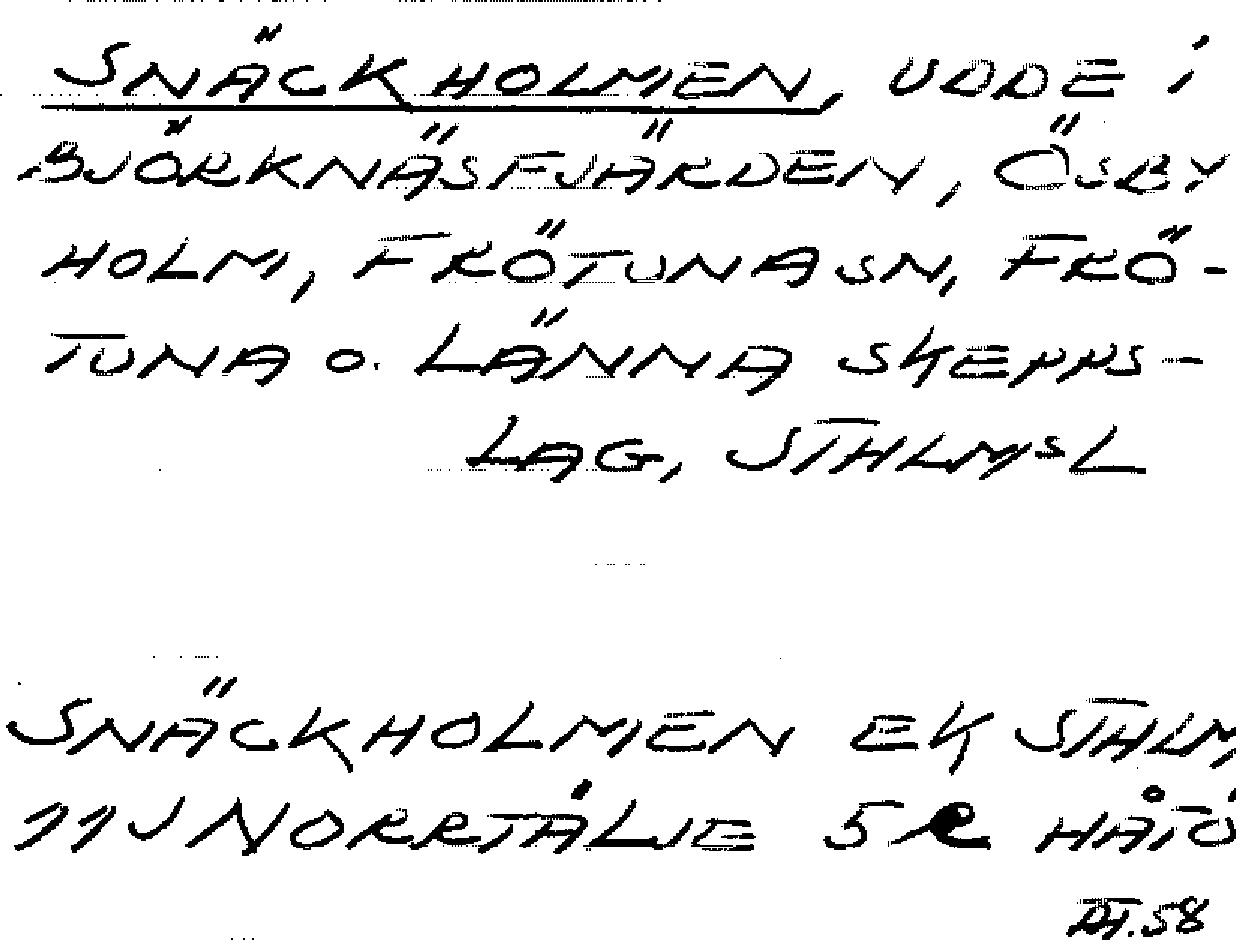 SNÄCKHOLMEN, UDDE I
BJÖRKNÄSFJÄRDEN, ÖSBY
HOLM, FRÖTUNA SN, FRÖ-
TUNA O. LÄNNA SKEPPS-
LAG, STHLMSL
SNÄCKHOLMEN EK STHLM
11J NORRTÄLJE 5 HÅTÖ
DT.58